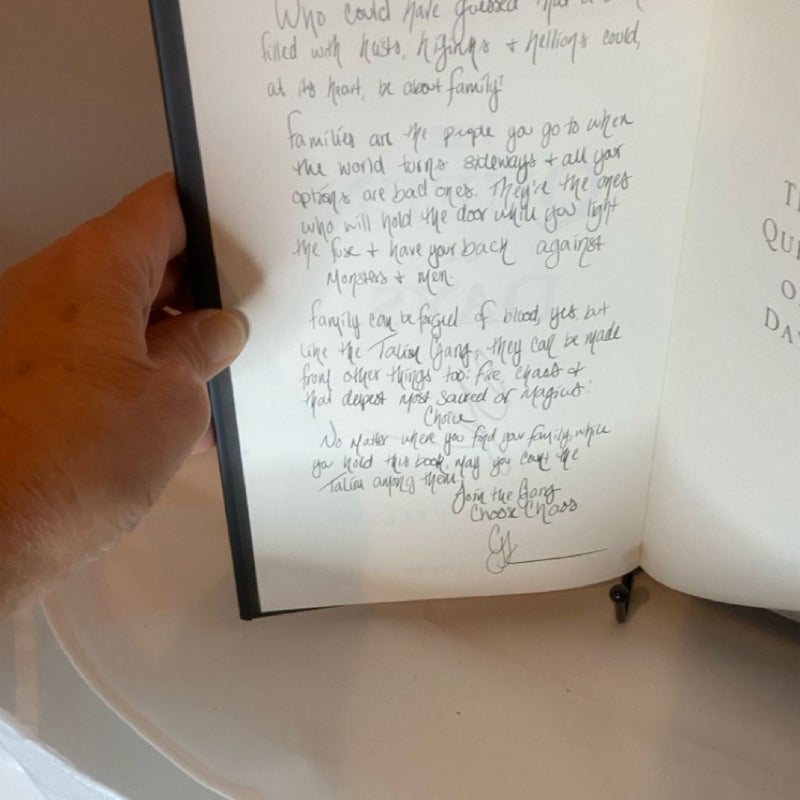 Who could have guessed that a
filled with heists, hijinks + hellions could,
at its heart, be about family?
Families are the people you go to when
the world turns sideways + all your
options are bad ones. They're the ones
who will hold the door while you light
the fuse + have your back against
Monsters + men.
Family can be forged of blood, yes, but
like the Talon Gang, they can be made
from other things too: fire, chaos +
that deepest most sacred of magics:
Choice
No matter where you find your family, while
you hold this book, may you count the
Talon among them!
Join the Gang
Choose Chaos.
T
QU
O
DA